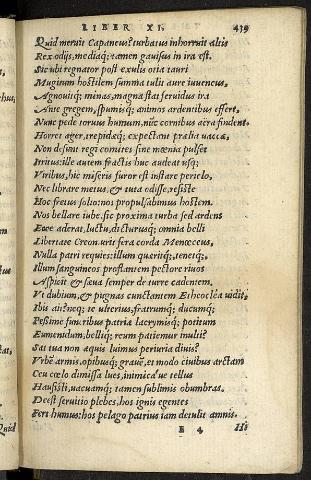 LIBER XI. 439
Quid meruit Capaneus? turbatus inhorruit altis
Rex odijs, mediaq; tamen gauisus in ira est.
Sic ubi regnator post exulis otia tauri
Mugitum hostilem summa tulit aure iuuencus,
Agnouitq; minas, magna stat feruidus ira
Ante gregem, spumisq; animos ardentibus effert,
Nunc pede toruus humum, nūc cornibus aëra findens.
Horret ager, trepidæq; expectant prælia uaccæ,
Non desunt regi comites sine mœnia pulset
Irritus: ille autem fractis huc audeat usq;
Viribus, hic miseris furor est instare periclo,
Nec librare metus, & tuta odisse, resiste
Hoc fretus solio: nos propulsabimus hostem.
Nos bellare iube. sic proxima turba sed ardens
Ecce aderat, luctu, dicturusq; omnia belli
Libertate Creon. urit fera corda Menœceus,
Nulla patri requies: illum queritq; tenetq;,
Illum sanguineos proflantem pectore riuos
Aspicit & sæua semper de turre cadentem.
Vt dubium, & pugnas cunctantem Etheoclea uidit,
Ibis ait? neq; te ulterius, fratrumq; ducumq;
Pessime funeribus patriæ lacrymisq; potitum
Eumenidum, belliq; reum patiemur multi?
Sat tua non æquis luimus periuria diuis?
Vrbē armis, opibusq; grauē, et modo ciuibus arctam
Ceu cœlo dimissa lues, inimica ue tellus
Hausisti, uacuamq; tamen sublimis obumbras.
Deest seruitio plebes, hos ignis egentes
Fert humus: hos pelago patrius iam detulit amnis.
E 4 Hi
Quid